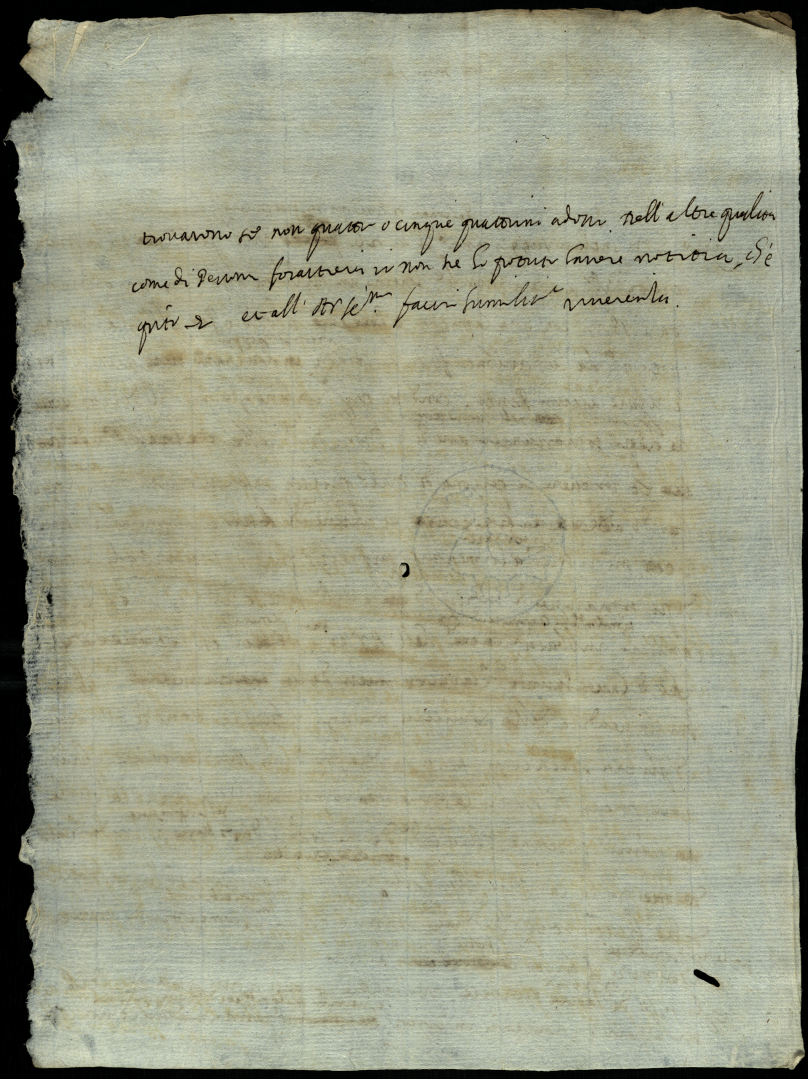 trovarono se non quattro o cinque quattrini adosso. Dell'altre qualità
come di persone forastieri io non ne ho potuto havere notitia, ch'è
q.to et all'
facio humiliss.e riverentia.